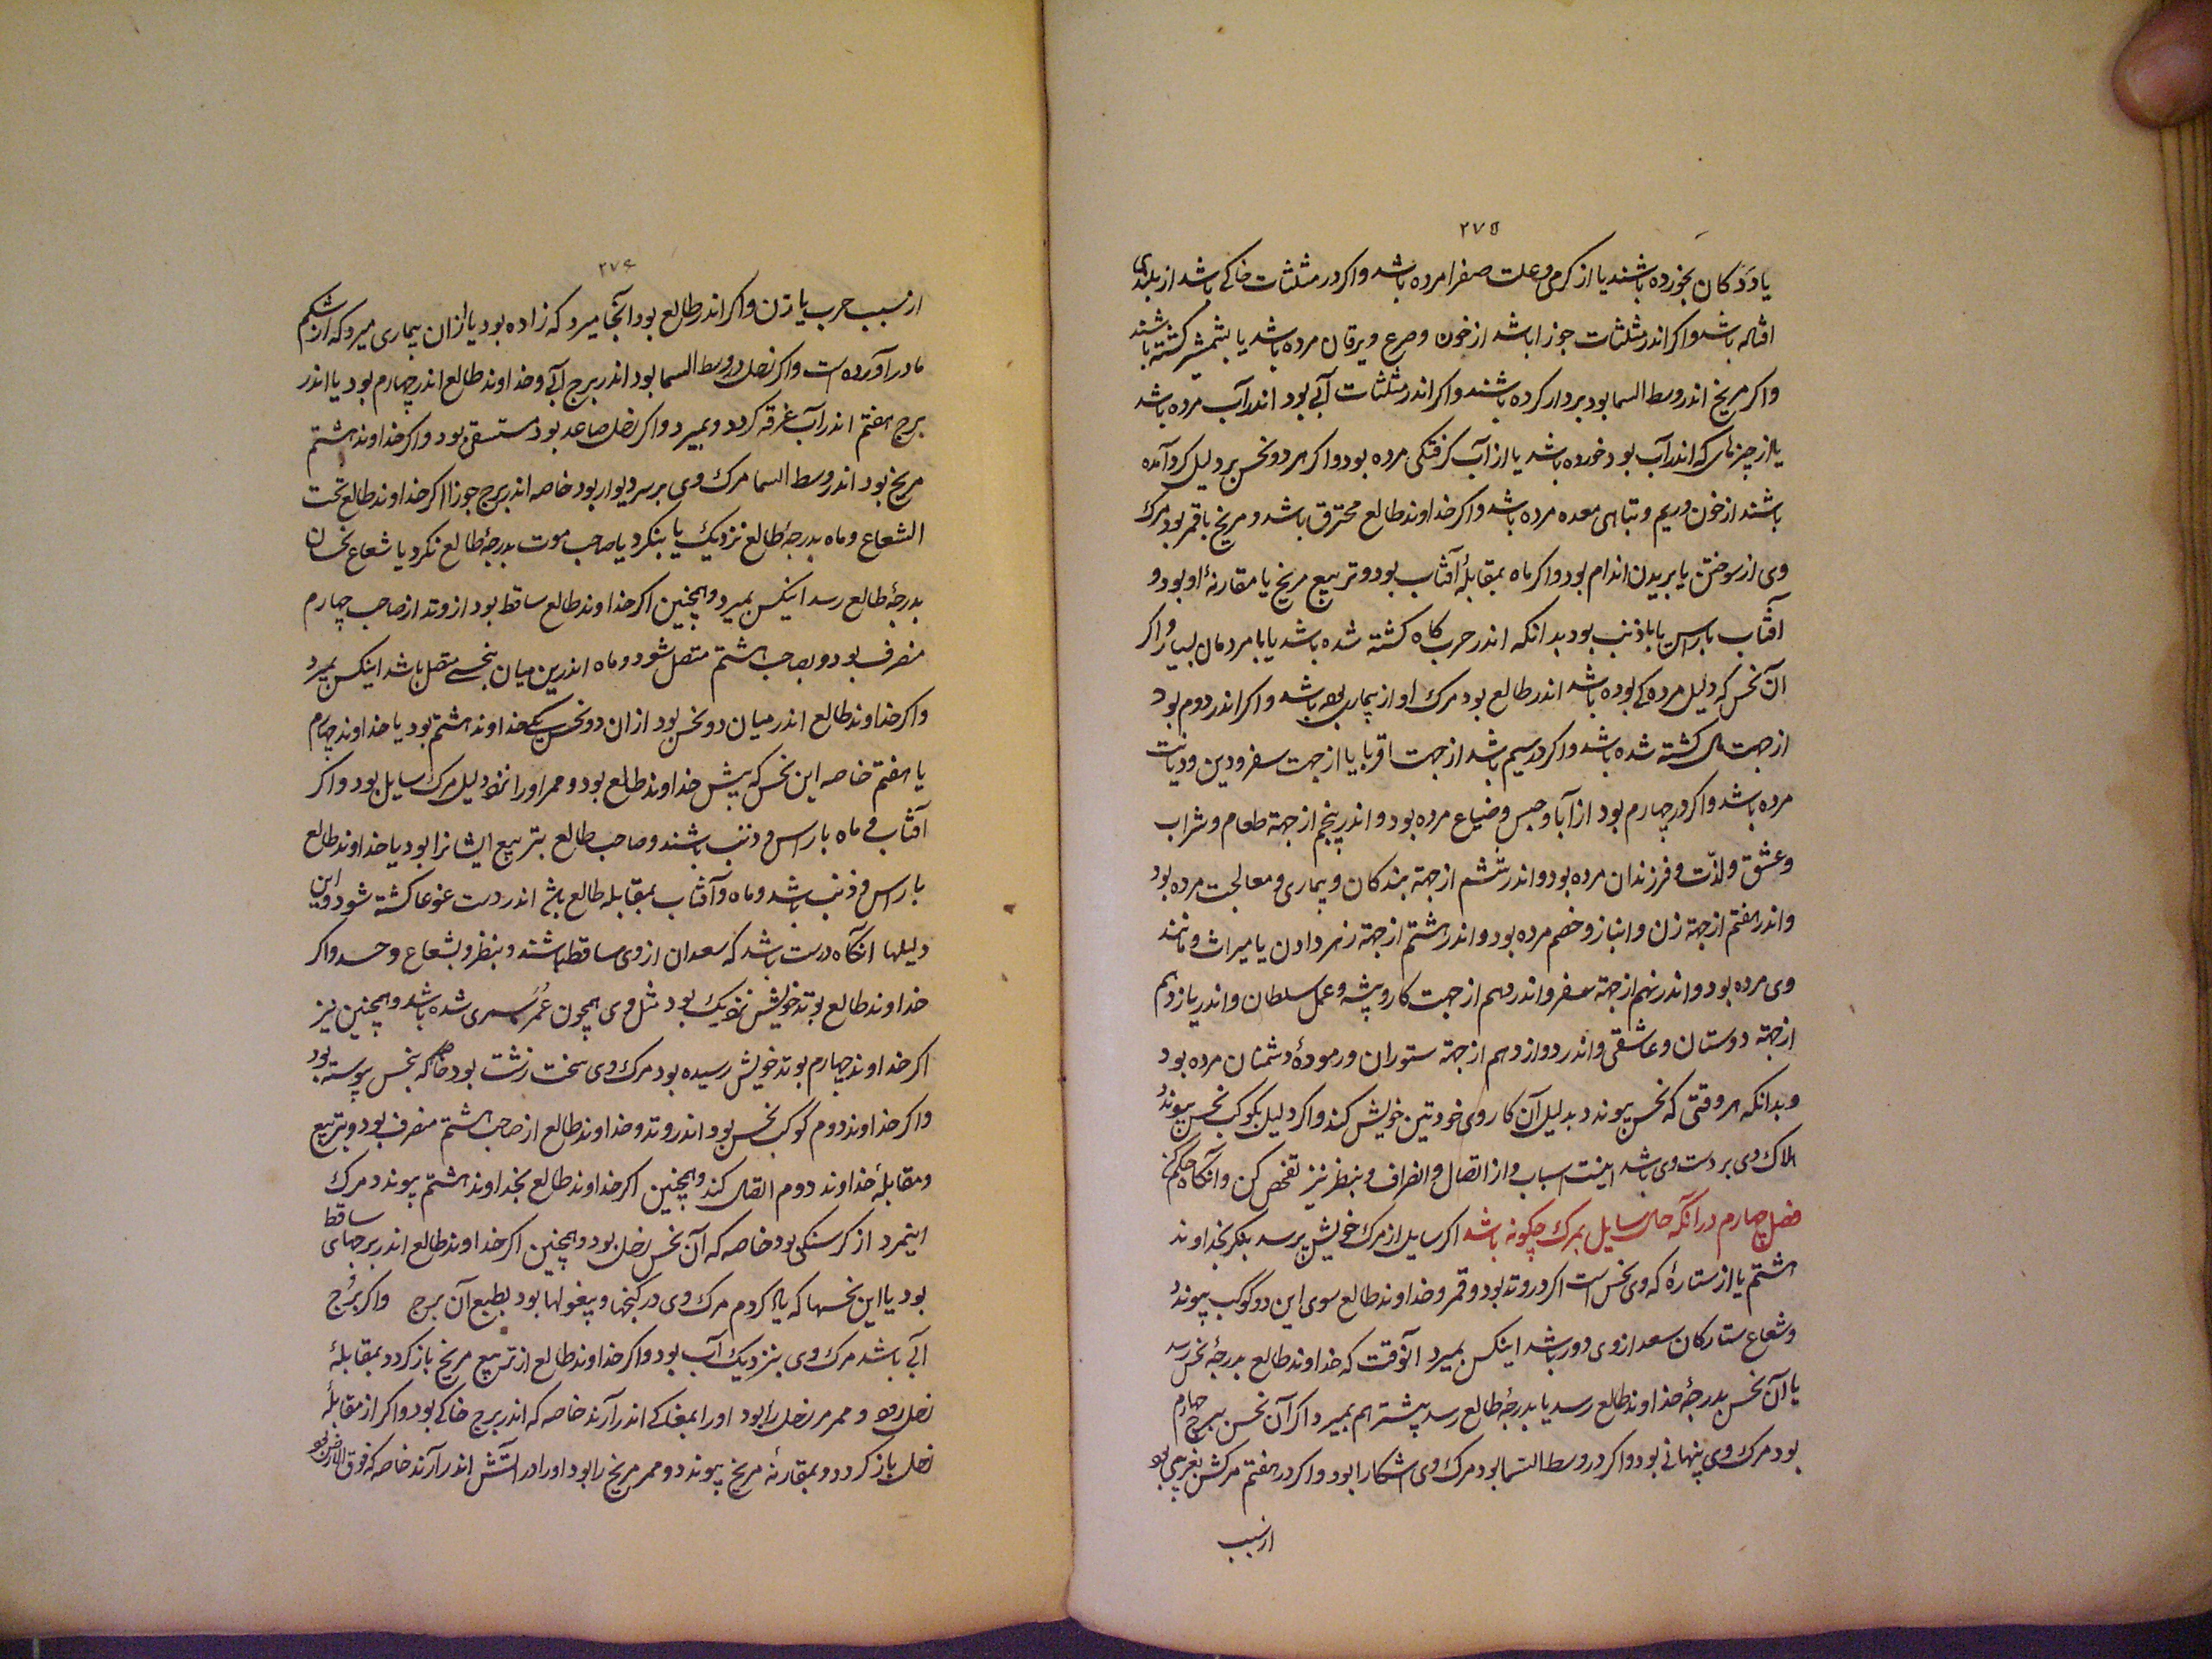 ۲۷۵
یا ددکان بخورده باشند یا از کرمی و علت صفرا مرده باشد و اکر در مثلثات خاکی باشد از بلندی
افتاله باشد و اکر اندر مثلثات جوزا باشد از خون و صرع و یرقان مرده باشد یا بشمشیر کشته باشند
و اکر مریخ اندر وسط السما بود بر دار کرده باشند و اکر اندر مثلثات آبی بود اندر آب مرده باشد
یا از چیزهای که اندر آب بود خورده باشد یا از آب کرفتکی مرده بود و اکر هر دو نحس بر دلیل کرد آمده
باشند از خون و ریم و تباهی معده مرده باشد و اکر خداوند طالع محترق باشد و مریخ با قمر بود مرک
وی از سوختن یا بریدن اندام بود و اکر ماه بمقابلهٔ آفتاب بود و تربیع مریخ یا مقارنهٔ او بود و
آفتاب با راس یا با ذنب بود بدانکه اندر حرب کاه کشته شده باشد یا با مردمان بسیار و اکر
آن نحس که دلیل مرده کی بوده باشد اندر طالع بود مرک او از بیماری باشد و اکر اندر دوم بود
از جهت مال کشته شده باشد و اکر در سیم باشد از جهت اقربا یا از جهت سفر و دین و دیانت
مرده باشد و اکر در چهارم بود از آبا و حبس و ضیاع مرده بود و اندر پنجم از جهة طعام و شراب
و عشق و لذّت و فرزندان مرده بود و اندر ششم از جهة بندکان و بیماری و معالجت مرده بود
و اندر هفتم از جهة زن و انباز و خصم مرده بود و اندر هشتم از جهة زهر دادن یا میراث و مانند
وی مرده بود و اندر نهم از جهة سفر و اندر دهم از جهت کار و پیشه و عمل سلطان و اندر یازدهم
از جهة دوستان و عاشقی و اندر دوازدهم از جهة ستوران و رمودهٔ دشمنان مرده بود
و بدانکه هر وقتی که نحس پیوندد بدلیل آن کار وی خودتین خویش کند و اکر دلیل بکوکب نحس پیوندد
هلاک وی بر دست وی باشد اینست اسباب و از اتصال و انصراف و بنظر نیز تفحص کن و آنکاه حکم کن
فصل چهارم در آنکه حال سایل بمرک چکونه باشد اکر سایل از مرک خویش پرسد بنکر بخداوند
هشتم یا از ستارهٔ که وی نحس است اکر در وتد بود و قمر و خداوند طالع سوی این دو کوکب پیوندد
و شعاع ستارکان سعد از وی دور باشد اینکس بمیرد آنوقت که خداوند طالع بدرجهٔ نحس رسد
یا آن نحس بدرجهٔ خداوند طالع رسد یا بدرجهٔ طالع رسد پیشتر هم بمیرد اکر آن نحس ببرج چهارم
بود مرک وی پنهانی بود و اکر در وسط السما بود مرک وی آشکارا بود و اکر در هفتم مرکش بغریبی بود
از سبب
۲۷۶
از سبب حرب یا زن و اکر اندر طالع بود آنجا میرد که زاده بود یا ازان بیماری میرد که از شکم
مادر آورده است و اکر زحل در وسط السما بود اندر برج آبی و خداوند طالع اندر چهارم بود یا اندر
برج هفتم اندر آب غرقه کردد و بمیرد و اکر زحل صاعد بود مستسقی بود و اکر خداوند هشتم
مریخ بود اندر وسط السما مرک وی بر سر دیوار بود خاصه اندر برج جوزا اکر خداوند طالع تحت
الشعاع و ماه بدرجهٔ طالع نزدیک یا بنکرد یا صاحب موت بدرجهٔ طالع نکرد یا شعاع نحسان
بدرجهٔ طالع رسد اینکس بمیرد و همچنین اکر خداوند طالع ساقط بود از وتد از صاحب چهارم
منصرف بود و بصاحب هشتم متصل شود و ماه اندرین میان بنحسی متصل باشد اینکس بمیرد
و اکر خداوند طالع اندر میان دو نحس بود ازان دو نحس یکی خداوند هشتم بود یا خداوند چهارم
یا هفتم خاصه این نحس که پیش خداوند طالع بود و ممر او را نزد دلیل مرک سایل بود و اکر
آفتاب و ماه با راس و ذنب باشند و صاحب طالع بتربیع ایشانرا بود یا خداوند طالع
با راس و ذنب باشد و ماه و آفتاب بمقابله طالع باشد اندر دست غوغا کشته شود و این
دلیلها آنکاه درست باشد که سعدان از وی ساقط باشند و بنظر و بشعاع و حسد و اکر
خداوند طالع بوتد خویش نزدیک بود مثل وی همچون عُمْر سپری شده باشد و همچنین نیز
اکر خداوند چهارم بوتد خویش رسیده بود مرک وی سخت زشت بود خاصه که بنحس پیوسته بود
و اکر خداوند دوم کوکب نحس بود اندر وتد و خداوند طالع از صاحب هشتم منصرف بود و بتربیع
و مقابلهٔ خداوند دوم اتصال کند و همچنین اکر خداوند طالع بخداوند هشتم پیوندد مرک
اینمرد از کرسنکی بود خاصه که آن نحس زحل بود و همچنین اکر خداوند طالع اندر برجهای ساقط
بود یا این نحسها که یاد کردم مرک وی در کنجها و پیغولها بود بطبع آن برج و اکر برج
آبی باشد مرک وی بنزدیک آب بود و اکر خداوند طالع از تربیع مریخ باز کردد بمقابلهٔ
زحل رود و ممر زحل را بود او را بمغاکی اندر آرند خاصه که اندر برج خاکی بود و اکر از مقابلهٔ
زحل باز کردد و بمقارنهٔ مریخ پیوندد و ممر مریخ را بود او را در آتش اندر آرند خاصه که فوق الارض بود